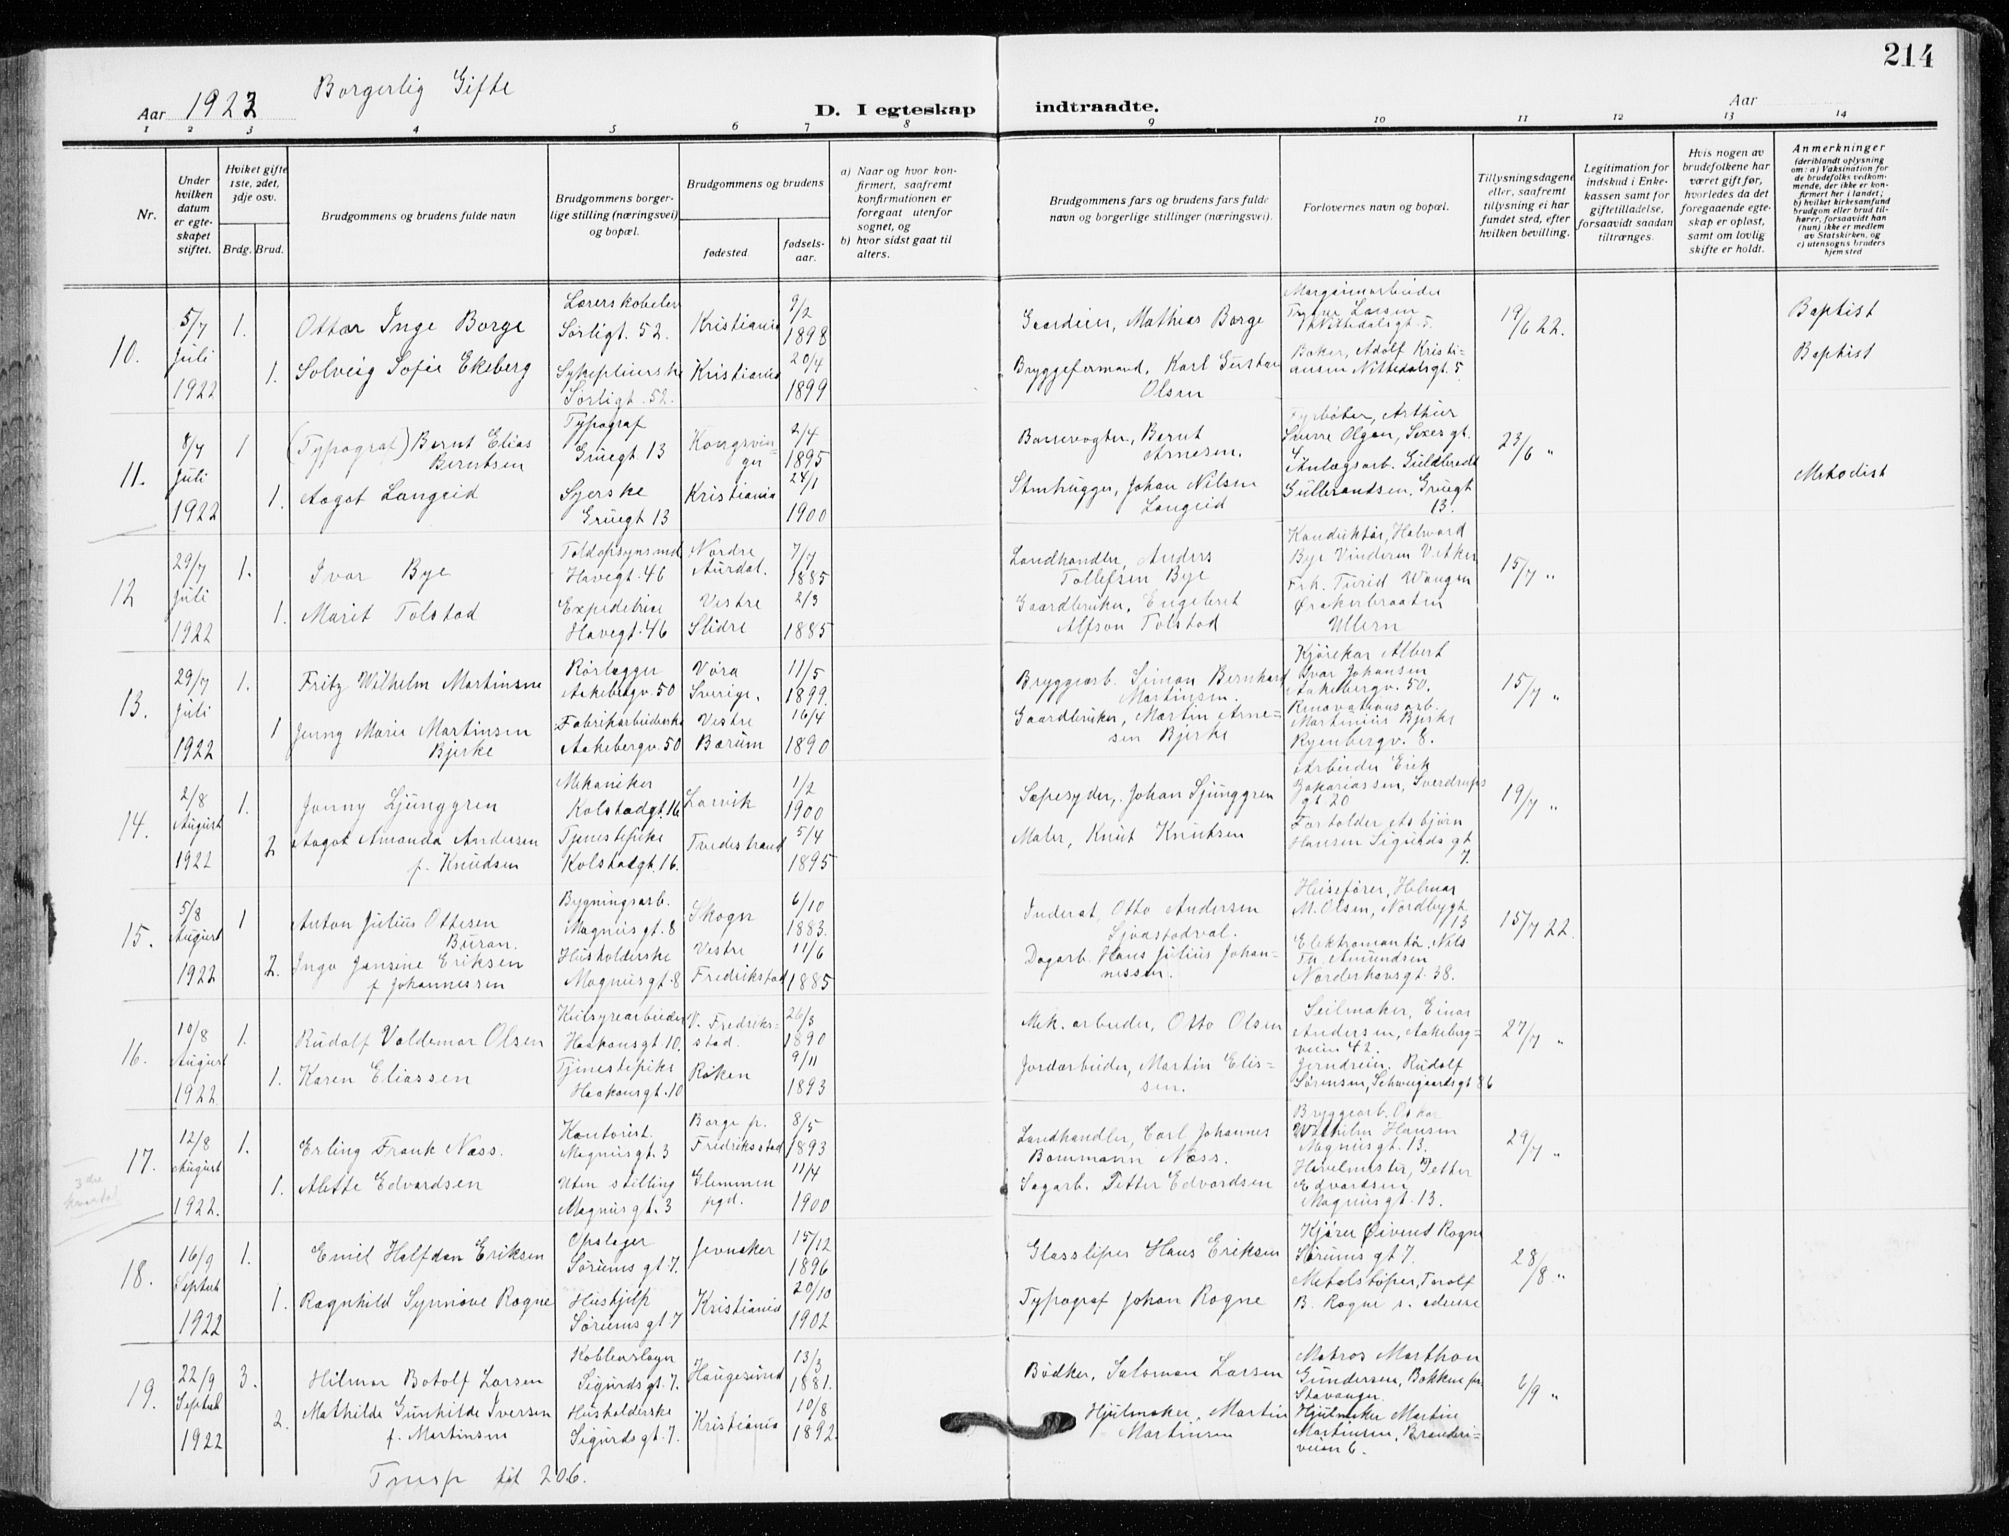 214
Borgerlig Gifte
Aar 1922
D. I egteskap indtraadte.
Aar
1 2 3 4 5 6 7 8 9 10 11 12 13 14
Nr.
Under hvilken datum er egteskapet stiftet.
Hviket gifte 1ste, 2det, 3dje osv.
Brdg. Brud.
Brudgommens og brudens fulde navn
Brudgommens borgerlige stilling (næringsvei) og bopæl.
Brudgommens og brudens
fødested.
fødselsaar.
a) Naar og hvor konfirmert, saafremt konfirmationen er foregaat utenfor sognet, og
b) hvor sidst gaat til alters.
Brudgommens fars og brudens fars fulde navn og borgerlige stillinger (næringsvei).
Forlovernes navn og bopæl.
Tillysningsdagene eller, saafremt tillysning ei har fundet sted, efter hvilken bevilling.
Legitimation for indskud i Enkekassen samt for giftetilladelse, forsaavidt saadan tiltrænges.
Hvis nogen av brudefolkene har været gift før, hvorledes da det foregaaende egteskap er opløst, samt om lovlig skifte er holdt.
Anmerkninger
(deriblandt oplysning om: a) Vaksination for de brudefolks vedkommende, der ikke er konfirmert her i landet; b) hvilket kirkesamfund brudgom eller brud tilhører, forsaavidt han (hun) ikke er medlem av Statskirken, og c) utensogns bruders hjemsted
10. 5/7 Juli 1922
1. Ottar Inge Borge
Sørligt. 52. Kristiania 9/2 1898
Gaardeier, Mathias Borge
Margarinarbeider Larsen Nittedalsgt. 5.
19/6 22.
Baptist
1. Solveig Sofie Ekeberg
Sykepleierske Sørligt. 52. Kristiania 20/4 1899
Bryggeformand, Karl Gustav Olsen
Baker, Adolf Kristiansen Nittedalsgt. 5.
Baptist
11. 8/7 Juli 1922
1 (Typograf) Bernt Elias Berntsen
Typograf Gruegt 13 Kongsvinger 2/4 1895
Banevogter, Bernt Arnesen.
Fyrbøter, Arthur Olsen, Sexesgt. 4
23/6 "
1. Aagot Langeid
Syerske Gruegt 13 Kristiania 24/1 1900
Stenhugger, Johan Nilsen Langeid
Anlægsarb. Guldbrand Gulbrandsen, Gruegt 13.
Metodist
12 29/7 Juli 1922
1. Ivar Bye
Toldopsynsmd Havegt. 46 Nordre Aurdal. 7/7 1885
Landhandler, Anders Tollefsen Bye
Konduktør, Halvard Bye Vinderen V. Aker
15/7 "
1. Marit Tolstad
Expeditrice Havegt. 46 Vestre Slidre 2/3 1885
Gaardbruker, Engebret Alfson Tolstad
Frk. Turid Wangen Ørakerbraaten Ullern
13. 29/7 Juli 1922
1. Fritz Wilhelm Martinsen
Rørlægger Aakebergv. 50 Sverige. 11/5 1899.
Bryggearb. Simon Bernhard Martinsen.
Kjørekar Albert Ivar Johansen Aakebergv. 50.
15/7 "
1 Jenny Marie Martinsen Bjerke
Fabrikarbeiderske Aakebergv. 50 Vestre Bærum 16/4 1890
Gaardbruker, Martin Arnesen Bjerke
Renovationsarb. Martinius Bjerke Ryenbergv. 8.
14. 2/8 August 1922
1. Jonny Ljunggren
Mekaniker Kolstadgt. 16 Larvik 1/2 1900
Sæpesyder, Johan Ljunggren
Arbeider Erik Zakariassen, Sverdrups gt 20
19/7 "
2 Aagot Amanda Andersen f. Knudsen
Tjenestepike Kolstadgt. 16. Tvedestrand 5/4 1895
Maler, Knut Knutsen
Forholder Asbjørn Hansen Sigurds gt 7.
15. 5/8 August 1922
1 Anton Julius Ottesen Buran.
Bygningsarb. Magnusgt. 8 Skogn 6/10 1883.
Inderst, Otto Andersen
Heisefører, Helmar M. Olsen, Nordbygt 13
15/7 22.
2. Inga Jensine Eriksen f Johannessen
Husholderske Magnusgt. 8 Vestre Fredrikstad 11/6 1885
Dagarb. Hans Julius Johannessen.
Elektromontør Nils Th. Amundsen Norderhovsgt. 38.
16. 10/8 August 1922
1. Rudolf Valdemar Olsen
Haakonsgt 10. V. Fredrikstad. 26/3 1890
Mek. arbeider, Otto Olsen
Seilmaker, Einar Andersen, Aakebergveien 42.
27/7 "
1. Karen Eliassen
Tjenestepike Haakonsgt. 10 Røken 9/11 1893
Jordarbeider, Martin Eliassen.
Rudolf Sørensen, Schweigaardsgt 86
17. 12/8 August 1922.
1. Erling Frank Næss.
Kontorist. Magnusgt. 3 Borge pr. Fredriksstad 8/5 1893
Landhandler, Carl Johannes Bommann Næss.
Bryggearb. Oskar Wilhelm Hansen Magnusgt. 13.
29/7 "
1. Alette Edvardsen
Uten stilling Magnusgt. 3 Glemmen pgd. 11/4 1900
Sagarb. Petter Edvardsen
Høvelmester, Petter Edvardsen Magnusgt. 13.
3die kvartal
18. 16/9 Septbr 1922
1. Emil Halfdan Eriksen
Opslager Sørums gt. 7. Jevnaker 15/12 1896
Glassliper Hans Eriksen
Kjører Øivind Rogne Sørums gt 7.
28/8 "
1. Ragnhild Synnøve Rogne
Hushjelp Sørums gt 7 Kristiania 20/10 1902
Typograf Johan Rogne
Metalstøper, Torolf B. Rogne s. adresse
19. 22/9 Septbr 1922
3. Hilmar Botolf Larsen
Sigurdsgt. 7. Haugesund 13/3 1881.
Bødker, Salomon Larsen
Matros Marthon Gundersen, Bakken pr. Stavanger.
6/9 "
2. Mathilde Gunhilde Iversen f. Martinsen
Husholderske Sigurdsgt. 7. Kristiania 10/8 1892.
Hjulmaker, Martin Martinsen
Hjulmaker Martin Martinsen, 6.
206.